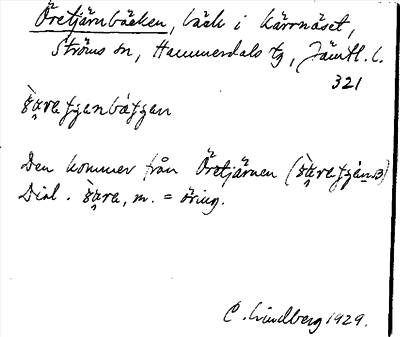 Öretjärnbäcken, bäck i Kärrnäset,
Ströms sn, Hammerdals tg, Jämtl. l.
321
Den kommer från Öretjärnen
Dial. , m. = öring.
C. Lindberg 1929.